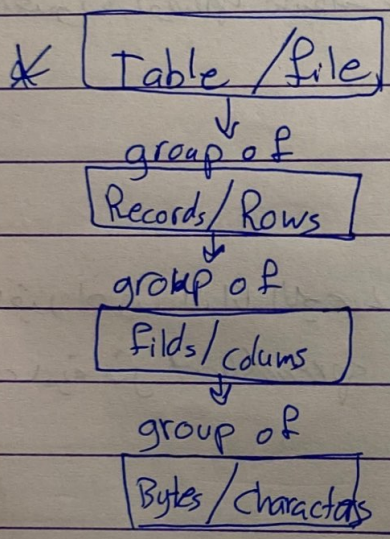 Table / file
group of
Records / Rows
group of
filds / colums
group of
Bytes / characters